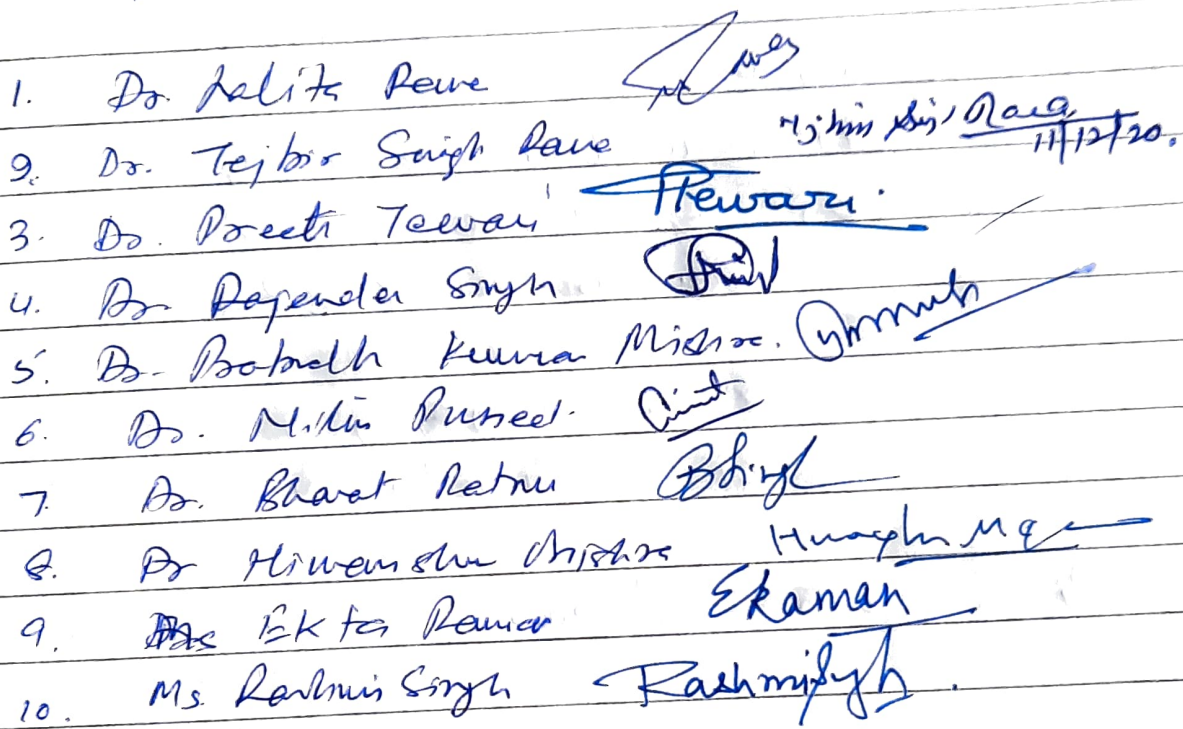 1. Dr. Lalita Rawe
2. Dr. Tejbir Singh Rana 11/12/20.
3. Dr. Preeti Tewari PTewari.
4. Dr. Rajender Singh
5. Dr. Kumar Mishra.
6. Dr. Nitin Puneet.
7. Dr. Bharat Ratnu BSingh
8. Dr Himanshu Mishra
9. Ekta Raman Ekraman
10. Ms. Rashmi Singh Rashmi Singh.